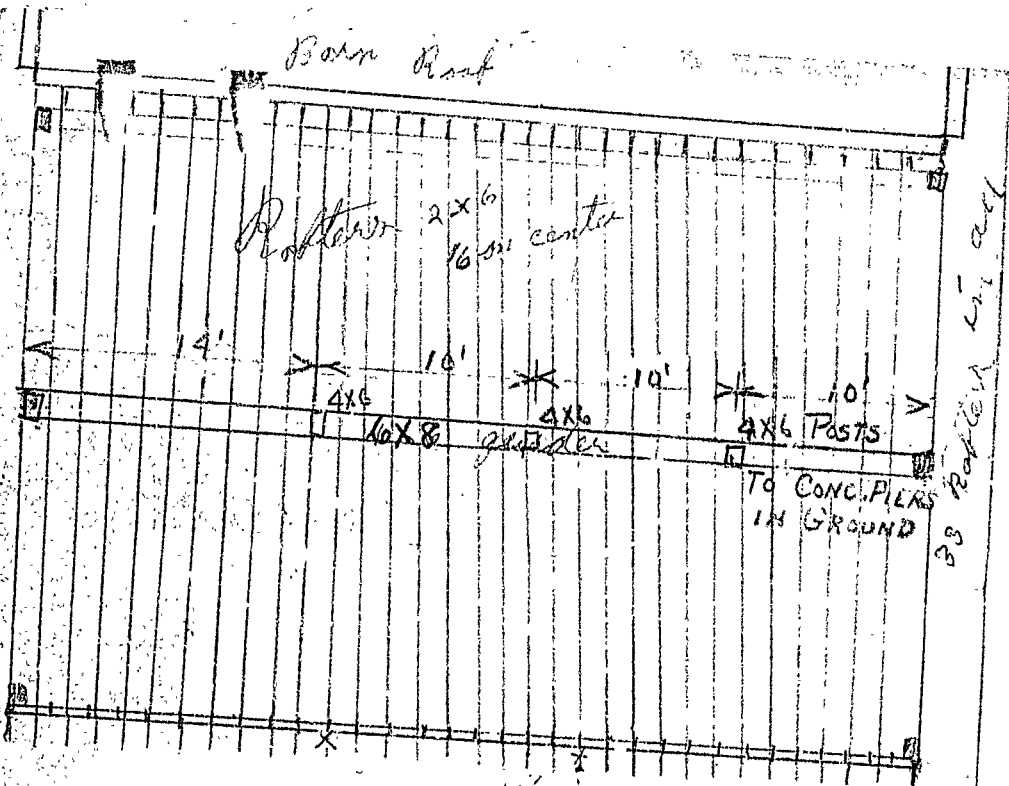 Barn Roof
Rafters 2x6
16 on center
14'
10'
10'
10'
4x6
4x6
4x6 Posts
6x8 girder
TO CONC. PIERS
IN GROUND
38 Rafters in all